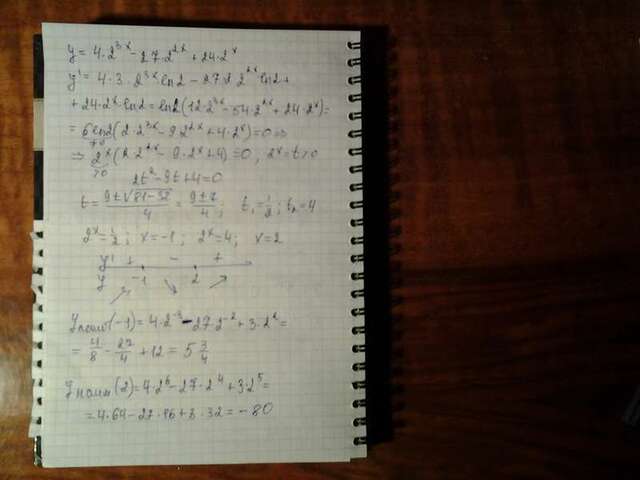 y = 4·2^{3x} - 27·2^{2x} + 24·2^x
y' = 4·3·2^{3x} ln2 - 27·2·2^{2x} ln2 +
+ 24·2^x·ln2 = ln2(12·2^{3x} - 54·2^{2x} + 24·2^x) =
= 6ln2(2·2^{3x} - 9·2^{2x} + 4·2^x) = 0 ⇒
>0
⇒ 2^x(2·2^{2x} - 9·2^x + 4) = 0, 2^x = t > 0
>0
2t² - 9t + 4 = 0
t = (9±√(81-32))/4 = (9±7)/4; t₁ = 1/2; t₂ = 4
2^x = 1/2; x = -1; 2^x = 4; x = 2
y' + - +
y -1 2
↗ ↘ ↗
(-1) = 4·2^{-3} - 27·2^{-2} + 3·2^2 =
= 4/8 - 27/4 + 12 = 5 3/4
y наим (2) = 4·2^6 - 27·2^4 + 3·2^5 =
= 4·64 - 27·16 + 3·32 = -80